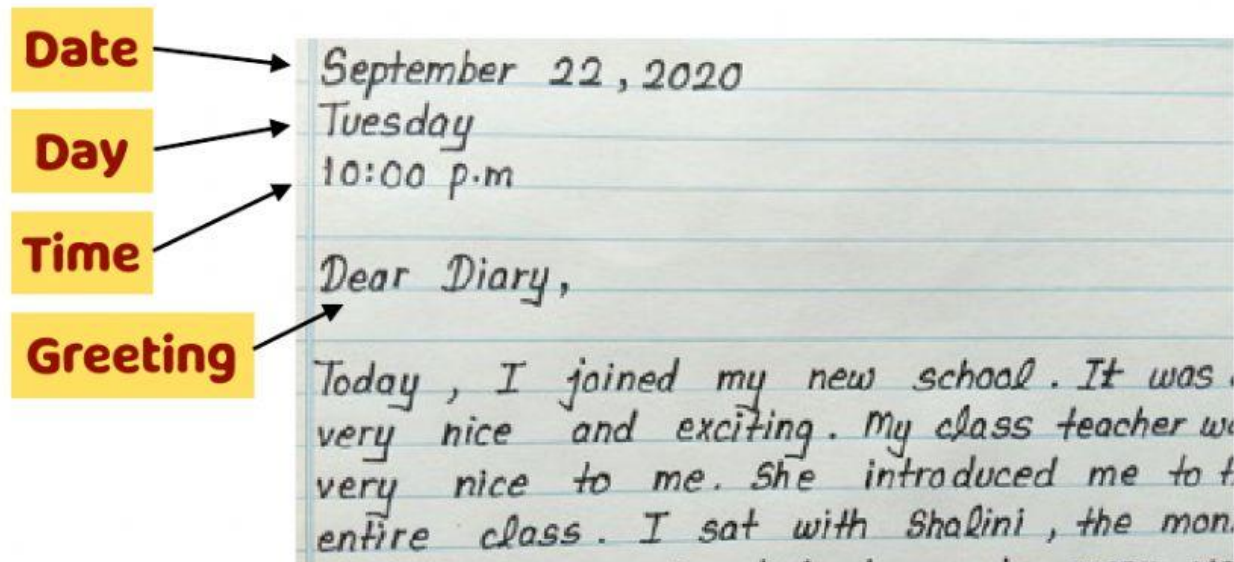 Date
September 22, 2020
Day
Tuesday
Time
10:00 p.m
Greeting
Dear Diary,
Today, I joined my new school. It was
very nice and exciting. My class teacher
very nice to me. She introduced me to
entire class. I sat with Shalini, the